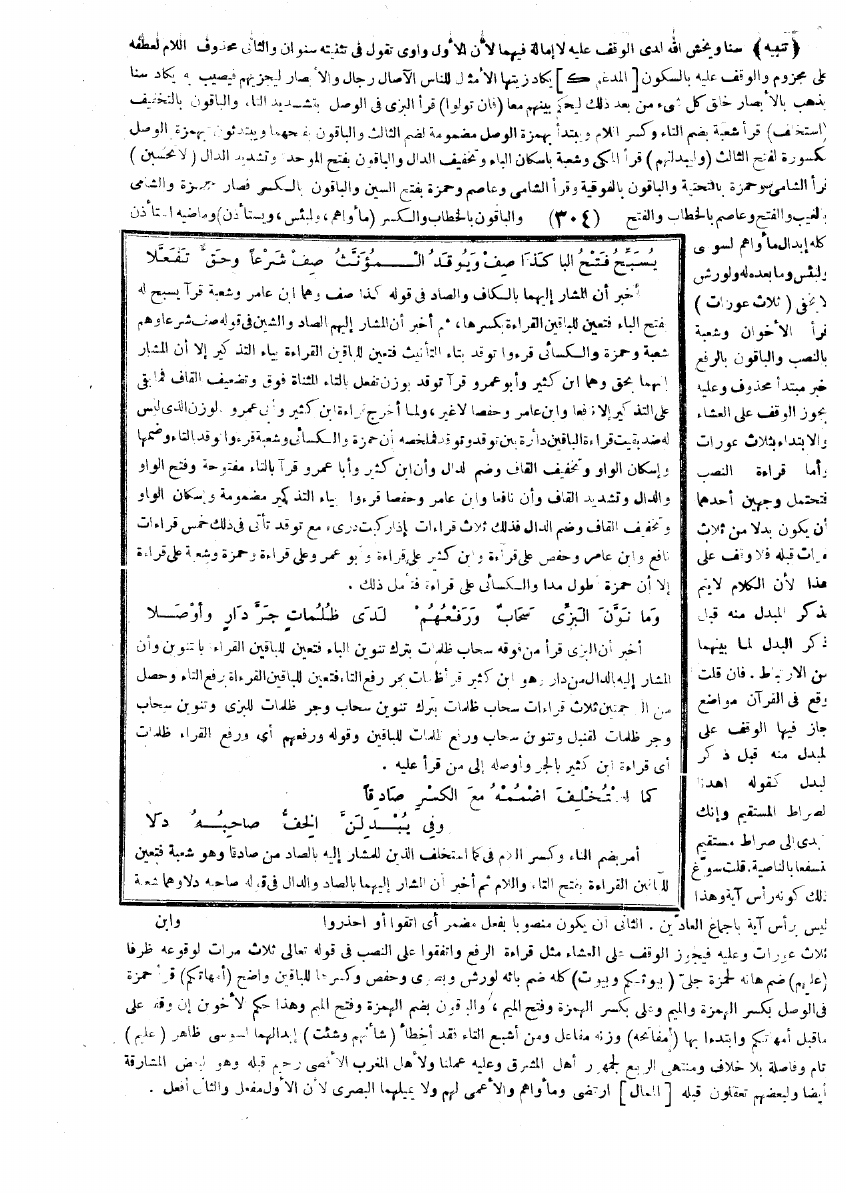 (تنبيه) سنا ويخش الله لدى الوقف عليه لا إمالة فيهما لأن الأول واوى تقول فى تثنيته سنوان والثانى محذوف اللام لعطفه
على مجزوم والوقف عليه بالسكون [المدغم ك] يكاد زيتها الأمثال للناس الآصال رجال والأبصار ليجزيهم فيصيب به يكاد سنا
يذهب بالأبصار خلق كل شىء من بعد ذلك ليحكم بينهم معا (فان تولوا) قرأ البزى فى الوصل بتشديد التاء والباقون بالتخفيف
(استخلف) قرأ شعبة بضم التاء وكسر اللام ويبتدأ بهمزة الوصل مضمومة لضم الثالث والباقون بفتحهما ويبتدئون بهمزة الوصل
مكسورة لفتح الثالث (وليبدلنهم) قرأ المكى وشعبة باسكان الباء وتخفيف الدال والباقون بفتح الموحدة وتشديد الدال (لا تحسبن)
قرأ الشامى وحمزة بالتحتية والباقون بالفوقية وقرأ الشامى وعاصم وحمزة بفتح السين والباقون بالكسر فصار حمزة والشامى
بالغيب والفتح وعاصم بالخطاب والفتح (٣٠٤) والباقون بالخطاب والكسر (مأواهم، ولبئس، ويستأذن) وماضيه استأذن
كله إبدال مأواهم لسوسى
ولبئس وما بعده له ولورش
لا يخفى (ثلاث عورات)
قرأ الأخوان وشعبة
بالنصب والباقون بالرفع
خبر مبتدأ محذوف وعليه
يجوز الوقف على العشاء
والابتداء بثلاث عورات
وأما قراءة النصب
فتحتمل وجهين أحدهما
أن يكون بدلا من ثلاث
مرات قبله فلا وقف على
هذا لأن الكلام لا يتم
بذكر المبدل منه قبل
ذكر البدل لما بينهما
من الارتباط. فان قلت
وقع فى القرآن مواضع
جاز فيها الوقف على
المبدل منه قبل ذكر
البدل كقوله اهدنا
الصراط المستقيم وإنك
لتهدى إلى صراط مستقيم
لنسفعا بالناصية. قلت سوّغ
ذلك كونه رأس آية وهذا
يُسَبِّحُ فَتْحُ الْبَا كَذَا صِفْ وَيُوقَدُ الْمُؤَنَّثُ صِفْ شَرْعًا وَحَقٌّ تَفَعَّلَا
أخبر أن المشار إليهما بالكاف والصاد فى قوله كذا صف وهما ابن عامر وشعبة قرآ يسبح له
بفتح الباء فتعين للباقين القراءة بكسرها، ثم أخبر أن المشار إليهم بالصاد والشين فى قوله صف شرعا وهم
شعبة وحمزة والكسائى قرءوا توقد بتاء التأنيث فتعين للباقين القراءة بياء التذكير إلا أن المشار
إليهما بحق وهما ابن كثير وأبو عمرو قرآ توقد بوزن تفعل بالتاء المثناة فوق وتضعيف القاف فما بقى
على التذكير إلا نافعا وابن عامر وحفصا لا غير، ولما أخرج قراءة ابن كثير وأبى عمرو بالوزن الذى ليس
له ضد بقيت قراءة الباقين دائرة بين توقد ويوقد فملخصه أن حمزة والكسائى وشعبة قرءوا توقد بالتاء وضمها
وإسكان الواو وتخفيف القاف وضم الدال وأن ابن كثير وأبا عمرو قرآ بالتاء مفتوحة وفتح الواو
والدال وتشديد القاف وأن نافعا وابن عامر وحفصا قرءوا بياء التذكير مضمومة وإسكان الواو
وتخفيف القاف وضم الدال فذلك ثلاث قراءات إذا ركبت درىء مع توقد تأتى فى ذلك خمس قراءات
نافع وابن عامر وحفص على قراءة وابن كثير على قراءة وأبو عمر وعلى قراءة وحمزة وشعبة على قراءة
إلا أن حمزة أطول مدا والكسائى على قراءة فتأمل ذلك.
وَمَا نَوَّنَ الْبَزِّى سَحَابٌ وَرَفْعُهُمْ لَدَى ظُلُمَاتٍ جَرَّ دَارٍ وَأَوْصَلَا
أخبر أن البزى قرأ من فوقه سحاب ظلمات بترك تنوين الباء فتعين للباقين القراءة بالتنوين وأن
المشار إليه بالدال من دار وهو ابن كثير قرأ ظلمات بجر رفع التاء فتعين للباقين القراءة برفع التاء وحصل
من الترجمتين ثلاث قراءات سحاب ظلمات بترك تنوين سحاب وجر ظلمات للبزى وتنوين سحاب
وجر ظلمات لقنبل وتنوين سحاب ورفع ظلمات للباقين وقوله ورفعهم أى ورفع القراء ظلمات
أى قراءة ابن كثير بالجر وأوصله إلى من قرأ عليه.
كَمَا اسْتُخْلِفَ اضْمُمْهُ مَعَ الْكَسْرِ صَادِقًا
وَفِى يُبْدِلَنَّ الْخِفُّ صَاحِبُهُ دَلَا
أمر بضم التاء وكسر اللام فى كما استخلف الذين للمشار إليه بالصاد من صادقا وهو شعبة فتعين
للباقين القراءة بفتح التاء واللام ثم أخبر أن المشار إليهما بالصاد والدال فى قوله صاحبه دلا وهما شعبة
وابن
ليس برأس آية باجماع العادّين. الثانى أن يكون منصوبا بفعل مضمر أى اتقوا أو احذروا
ثلاث عورات وعليه فيجوز الوقف على العشاء مثل قراءة الرفع واتفقوا على النصب فى قوله تعالى ثلاث مرات لوقوعه ظرفا
(عليهم) ضم هائه لحمزة جلىّ (بيوتكم وبيوت) كله ضم بائه لورش وبصرى وحفص وكسرها للباقين واضح (أمهاتكم) قرأ حمزة
فى الوصل بكسر الهمزة والميم وعلى بكسر الهمزة وفتح الميم، والباقون بضم الهمزة وفتح الميم وهذا حكم الأخوين إن وقفا على
ماقبل أمهاتكم وابتدءا بها (مفاتحه) وزنه مفاعل ومن أشبع التاء فقد أخطأ (شأنهم وشئت) إبدالهما لسوسى ظاهر (عليم)
تام وفاصلة بلا خلاف ومنتهى الربع لجمهور أهل المشرق وعليه عملنا ولأهل المغرب الأقصى رحيم قبله وهو لبعض المشارقة
أيضا ولبعضهم تعقلون قبله [الممال] ارتضى ومأواهم والأعمى لهم ولا يميلهما البصرى لأن الأول مفعل والثانى أفعل.